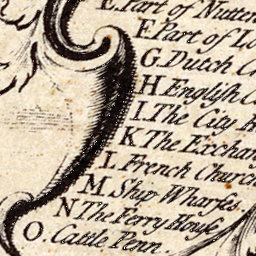 E. Part of Nutten
F. Part of Lo
G. Dutch C
H. English C
I. The City H
K. The Exchan
L. French Church
M. Ship Wharfes
N. The Ferry House
O. Cattle Penn.